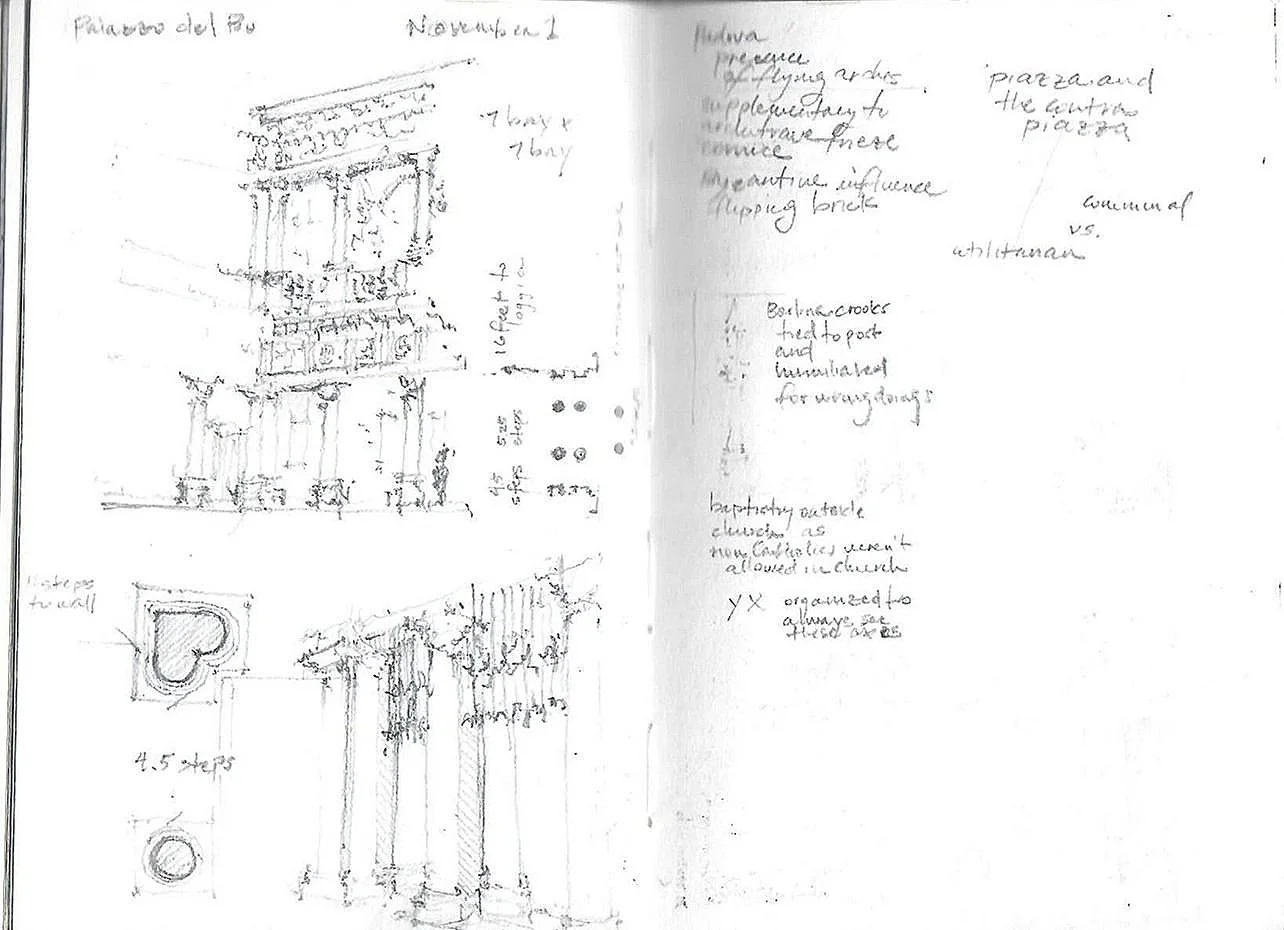 Palazzo del Bo
November 1
7 bay x
7 bay
16 feet to
loggia
5.25
steps
45
steps
steps
to wall
4.5 steps
Padova
presence
of flying arches
supplementary to
architrave frieze
cornice
Byzantine influence
flipping brick
piazza and
the contra
piazza
communal
vs.
utilitarian
crooks
tied to post
and
humiliated
for wrongdoings
baptistry outside
church as
non Catholics weren't
allowed in church
YX organized two
always see
these axes